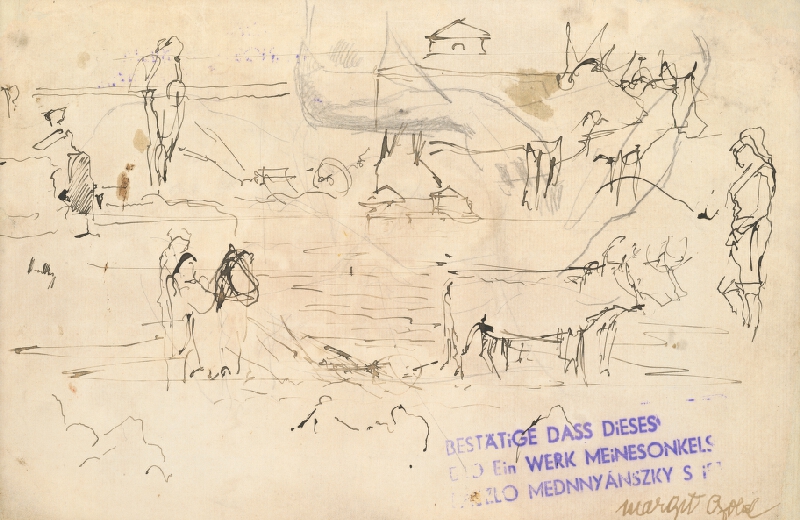 BESTÄTiGE DASS DiESES
Ein WERK MEiNESONKELS
LO MEDNNYÁNSZKY S
margit